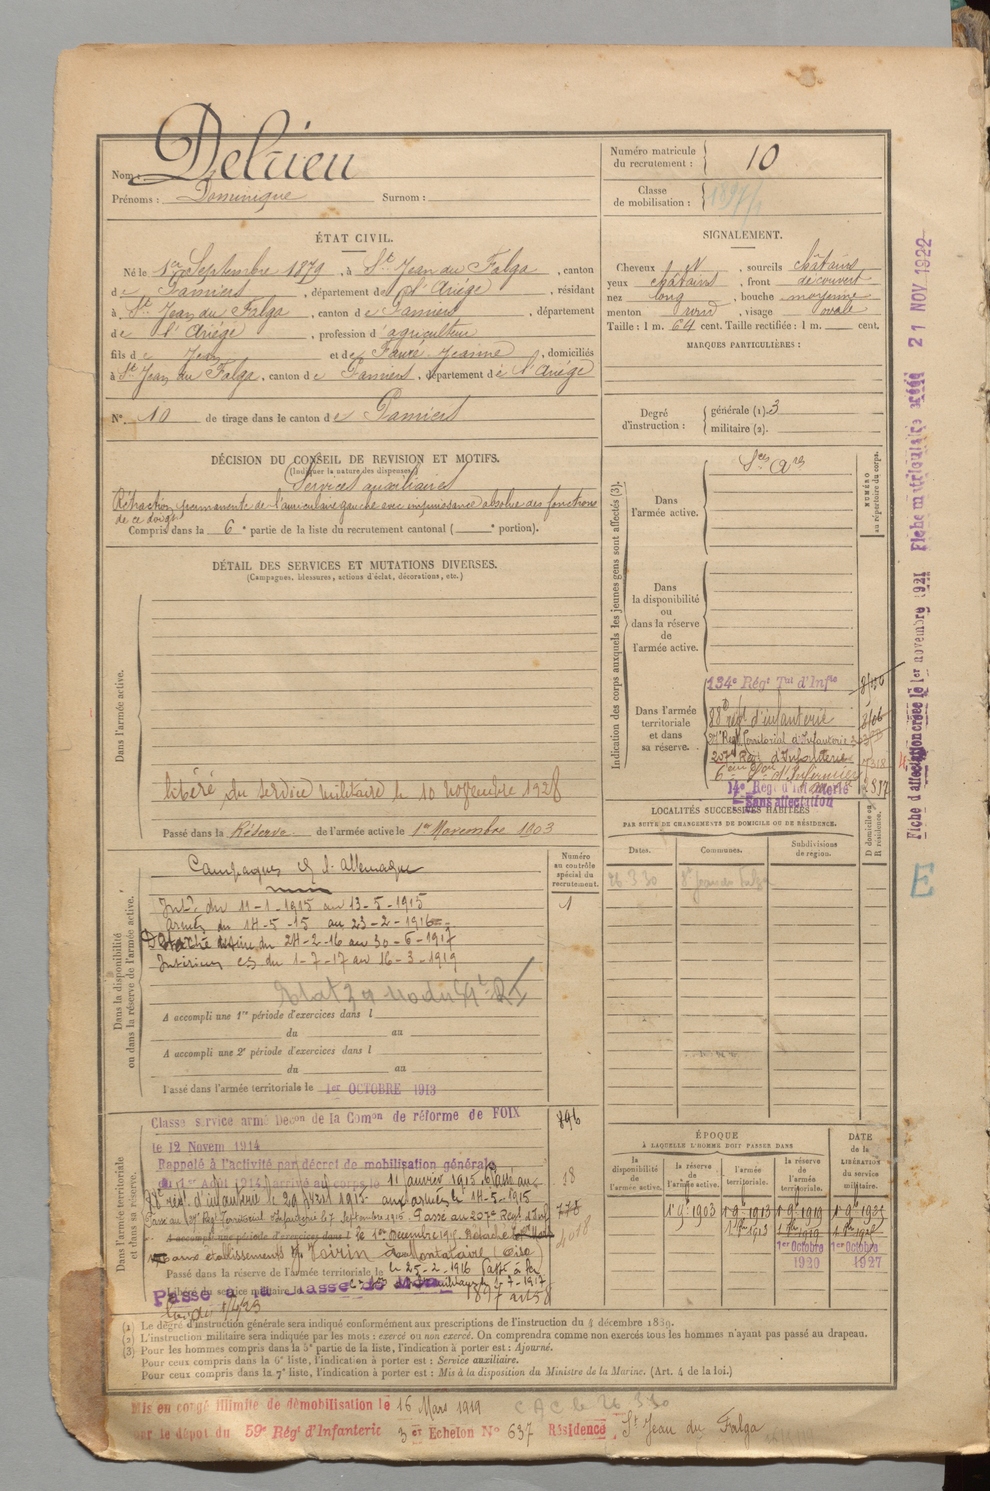 Nom : Delrieu
Prénoms : Dominique Surnom :
Numéro matricule
du recrutement : 10
Classe
de mobilisation : 1897/1
ÉTAT CIVIL.
Né le 1er Septembre 1879, à St Jean du Falga, canton
de Pamiers, département de l'Ariège, résidant
à St Jean du Falga, canton de Pamiers, département
de l'Ariège, profession d'agriculteur
fils de Jean et de Fauré Jeanne, domiciliés
à St Jean du Falga, canton de Pamiers, département de l'Ariège
N° 10 de tirage dans le canton de Pamiers
SIGNALEMENT.
Cheveux et N, sourcils châtains
yeux châtains, front découvert
nez long, bouche moyenne
menton rond, visage ovale
Taille : 1 m. 64 cent. Taille rectifiée : 1 m. cent.
MARQUES PARTICULIÈRES :
Degré
d'instruction :
générale (1). 3
militaire (2).
DÉCISION DU CONSEIL DE REVISION ET MOTIFS.
(Indiquer la nature des dispenses)
Services auxiliaires
Rétraction permanente de l'auriculaire gauche avec impuissance absolue des fonctions
de ce doigt
Compris dans la 6e partie de la liste du recrutement cantonal ( e portion).
DÉTAIL DES SERVICES ET MUTATIONS DIVERSES.
(Campagnes, blessures, actions d'éclat, décorations, etc.)
Dans l'armée active.
libéré du service militaire le 10 novembre 1928
Passé dans la Réserve de l'armée active le 1er Novembre 1903
Indication des corps auxquels les jeunes gens sont affectés (3).
NUMÉRO
au répertoire du corps.
Dans
l'armée active.
Ses Ares
Dans
la disponibilité
ou
dans la réserve
de
l'armée active.
Dans l'armée
territoriale
et dans
sa réserve.
134e Régt Tal d'Infie
88e régt d'infanterie
Régt Territorial d'Infanterie
207e Régt d'Infanterie
14e Régt d'Infanterie
Sans affectation
LOCALITÉS SUCCESSIVES HABITÉES
PAR SUITE DE CHANGEMENTS DE DOMICILE OU DE RÉSIDENCE.
Dates. Communes. Subdivisions
de région.
D domicile ou
R résidence.
26 3 30 St Jean du Falga
Dans la disponibilité
ou dans la réserve de l'armée active.
Numéro
au contrôle
spécial du
recrutement.
1
Campagnes C. l'Allemagne
Intr. du 11-1-1915 au 13-5-1915
armées du 14-5-15 au 23-2-1916
Détaché usine du 24-2-16 au 30-6-1917
Intérieur cs du 1-7-17 au 16-3-1919
A accompli une 1re période d'exercices dans l
du au
A accompli une 2e période d'exercices dans l
du au
Passé dans l'armée territoriale le 1er OCTOBRE 1913
Dans l'armée territoriale
et dans sa réserve.
Classé service armé Decon de la Comon de réforme de FOIX
le 12 Novem 1914
Rappelé à l'activité par décret de mobilisation générale
du 1er Août 1914, arrivé au corps le 11 janvier 1915. Passé au
88e régt d'infanterie le 29 aux armées le 14-5-1915
Passé au Régt Territorial Infanterie le 7 septembre 1915. Passé au 207e Régt d'Inf
A accompli une période d'exercices dans l
le 1er Décembre 1915. Détaché
dans établissements Voirin à Montataire (Oise)
Passé dans la réserve de l'armée territoriale le
le 25-2-1916 Passé
Libéré du service militaire le
Passé à la classe de Mon 1897 art 58
ÉPOQUE
À LAQUELLE L'HOMME DOIT PASSER DANS
la
disponibilité
de
l'armée active.
la réserve
de
l'armée active.
l'armée
territoriale.
la réserve
de
l'armée
territoriale.
DATE
de la
LIBÉRATION
du service
militaire.
1er 9e 1903 1er 9e 1913 1er 9e 1919
1er Octobre 1920
1er Octobre 1927
(1) Le degré d'instruction générale sera indiqué conformément aux prescriptions de l'instruction du 4 décembre 1889.
(2) L'instruction militaire sera indiquée par les mots : exercé ou non exercé. On comprendra comme non exercés tous les hommes n'ayant pas passé au drapeau.
(3) Pour les hommes compris dans la 5e partie de la liste, l'indication à porter est : Ajourné.
Pour ceux compris dans la 6e liste, l'indication à porter est : Service auxiliaire.
Pour ceux compris dans la 7e liste, l'indication à porter est : Mis à la disposition du Ministre de la Marine. (Art. 4 de la loi.)
Mis en congé illimité de démobilisation le 16 Mars 1919 CAC le 26 3 30
par le dépôt du 59e Régt d'Infanterie 3e Echelon N° 637 Résidence St Jean du Falga
Fiche d'affectation créée le 1er novembre 1921 Fiche matriculaire créée 21 NOV 1922
E